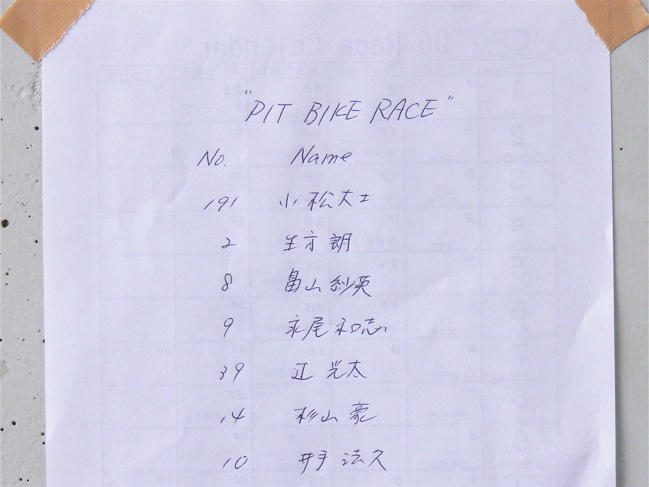 "PIT BIKE RACE"
No. Name
191 小松大士
2 生方 朗
8 畠山 紗英
9 永尾 和志
39 辻 光太
14 杉山 豪
10 井手 法久
06 Race Calendar